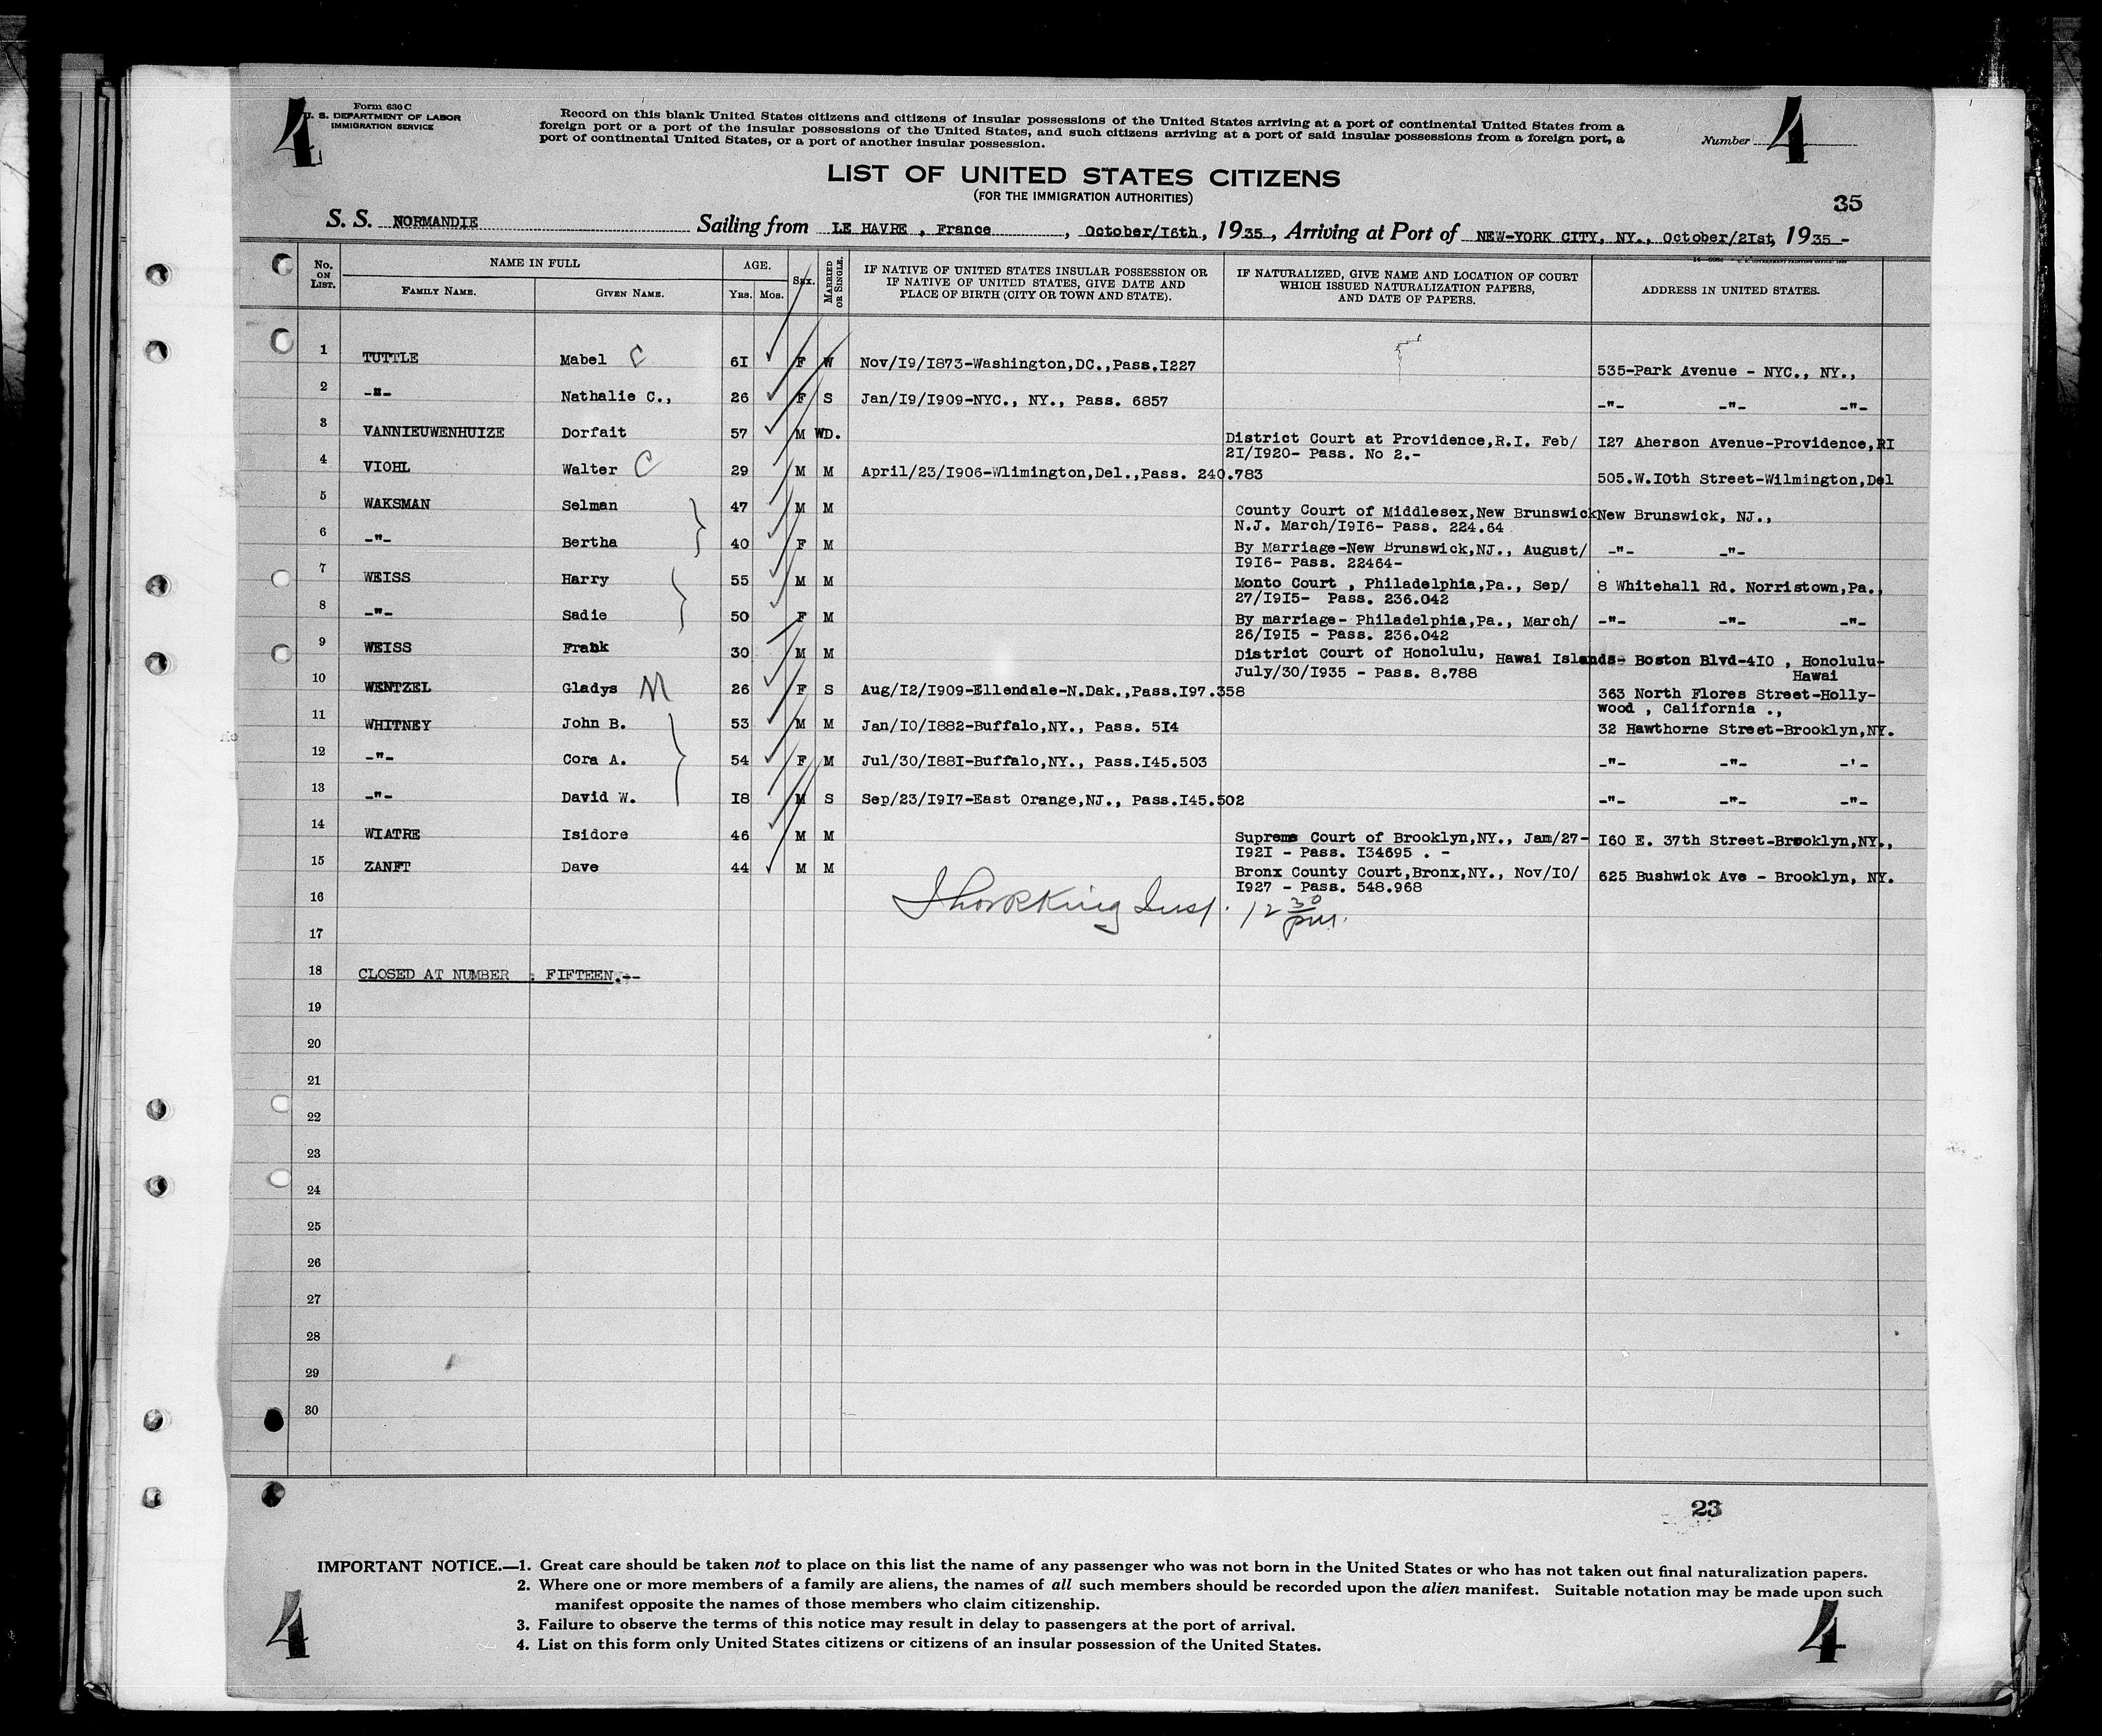 4
Form 630 C
U. S. DEPARTMENT OF LABOR
IMMIGRATION SERVICE
Record on this blank United States citizens and citizens of insular possessions of the United States arriving at a port of continental United States from a
foreign port or a port of the insular possessions of the United States, and such citizens arriving at a port of said insular possessions from a foreign port, a
port of continental United States, or a port of another insular possession.
Number 4
LIST OF UNITED STATES CITIZENS
(FOR THE IMMIGRATION AUTHORITIES)
35
S. S. NORMANDIE Sailing from LE HAVRE , France , October/16th, 1935, Arriving at Port of NEW-YORK CITY, NY., October/21st, 1935-
No. ON LIST. NAME IN FULL FAMILY NAME. GIVEN NAME. AGE. YRS. MOS. SEX. MARRIED OR SINGLE. IF NATIVE OF UNITED STATES INSULAR POSSESSION OR IF NATIVE OF UNITED STATES, GIVE DATE AND PLACE OF BIRTH (CITY OR TOWN AND STATE). IF NATURALIZED, GIVE NAME AND LOCATION OF COURT WHICH ISSUED NATURALIZATION PAPERS, AND DATE OF PAPERS. ADDRESS IN UNITED STATES.
1 TUTTLE Mabel C 61 F W Nov/19/1873-Washington,DC.,Pass.1227 535-Park Avenue - NYC., NY.,
2 -"- Nathalie C., 26 F S Jan/19/1909-NYC., NY., Pass. 6857 -"- -"- -"-
3 VANNIEUWENHUIZE Dorfait 57 M WD. District Court at Providence,R.I. Feb/ 127 Aherson Avenue-Providence,RI
21/1920- Pass. No 2.-
4 VIOHL Walter C 29 M M April/23/1906-Wlimington,Del.,Pass. 240.783 505.W.10th Street-Wilmington,Del
5 WAKSMAN Selman 47 M M County Court of Middlesex,New Brunswick New Brunswick, NJ.,
N.J. March/1916- Pass. 224.64
6 -"- Bertha 40 F M By Marriage-New Brunswick,NJ., August/ -"- -"-
1916- Pass. 22464-
7 WEISS Harry 55 M M Monto Court , Philadelphia,Pa., Sep/ 8 Whitehall Rd. Norristown,Pa.,
27/1915- Pass. 236.042
8 -"- Sadie 50 F M By marriage- Philadelphia,Pa., March/ -"- -"- -"-
26/1915 - Pass. 236.042
9 WEISS Frank 30 M M District Court of Honolulu, Hawai Islands- Boston Blvd-410 , Honolulu-
July/30/1935 - Pass. 8.788 Hawai
10 WENTZEL Gladys M 26 F S Aug/12/1909-Ellendale-N.Dak.,Pass.197.358 363 North Flores Street-Holly-
wood , California .,
11 WHITNEY John B. 53 M M Jan/10/1882-Buffalo,NY., Pass. 514 32 Hawthorne Street-Brooklyn,NY.
12 -"- Cora A. 54 F M Jul/30/1881-Buffalo,NY., Pass.145.503 -"- -"- -'-
13 -"- David W. 18 M S Sep/23/1917-East Orange,NJ., Pass.145.502 -"- -"- -"-
14 WIATRE Isidore 46 M M Supreme Court of Brooklyn,NY., Jan/27- 160 E. 37th Street-Brooklyn,NY.,
1921 - Pass. 134695 . -
15 ZANFT Dave 44 M M Bronx County Court,Bronx,NY., Nov/10/ 625 Bushwick Ave - Brooklyn, NY.
1927 - Pass. 548.968
16 King Insp. 12 30 pm.
17
18 CLOSED AT NUMBER : FIFTEEN.--
19
20
21
22
23
24
25
26
27
28
29
30
23
IMPORTANT NOTICE.—1. Great care should be taken not to place on this list the name of any passenger who was not born in the United States or who has not taken out final naturalization papers.
2. Where one or more members of a family are aliens, the names of all such members should be recorded upon the alien manifest. Suitable notation may be made upon such
manifest opposite the names of those members who claim citizenship.
3. Failure to observe the terms of this notice may result in delay to passengers at the port of arrival.
4. List on this form only United States citizens or citizens of an insular possession of the United States.
4
4